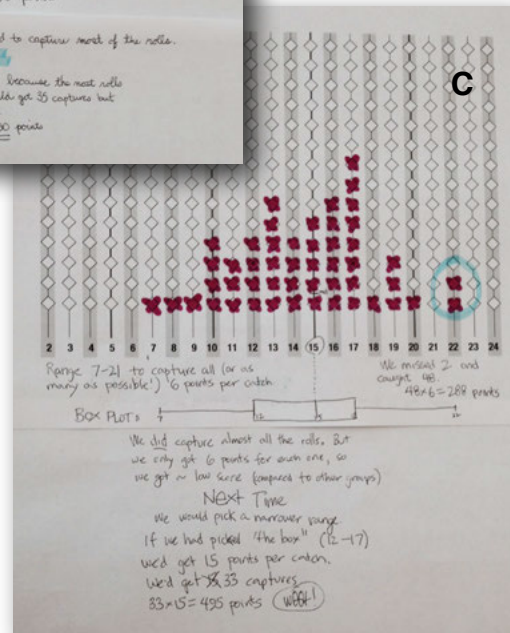 d to capture most of the rolls.
because the most rolls
got 35 captures but
points
C
2 3 4 5 6 7 8 9 10 11 12 13 14 15 16 17 18 19 20 21 22 23 24
Range 7-21 to capture all (or as
many as possible!) 6 points per catch.
We missed 2 and
caught 48.
48×6=288 points
BOX PLOT:
7 12 15 17 22
We did capture almost all the rolls. But
we only got 6 points for each one, so
we got a low score (compared to other groups)
Next Time
We would pick a narrower range
If we had picked "the box" (12-17)
we'd get 15 points per catch.
We'd get 33 captures
33×15=495 points